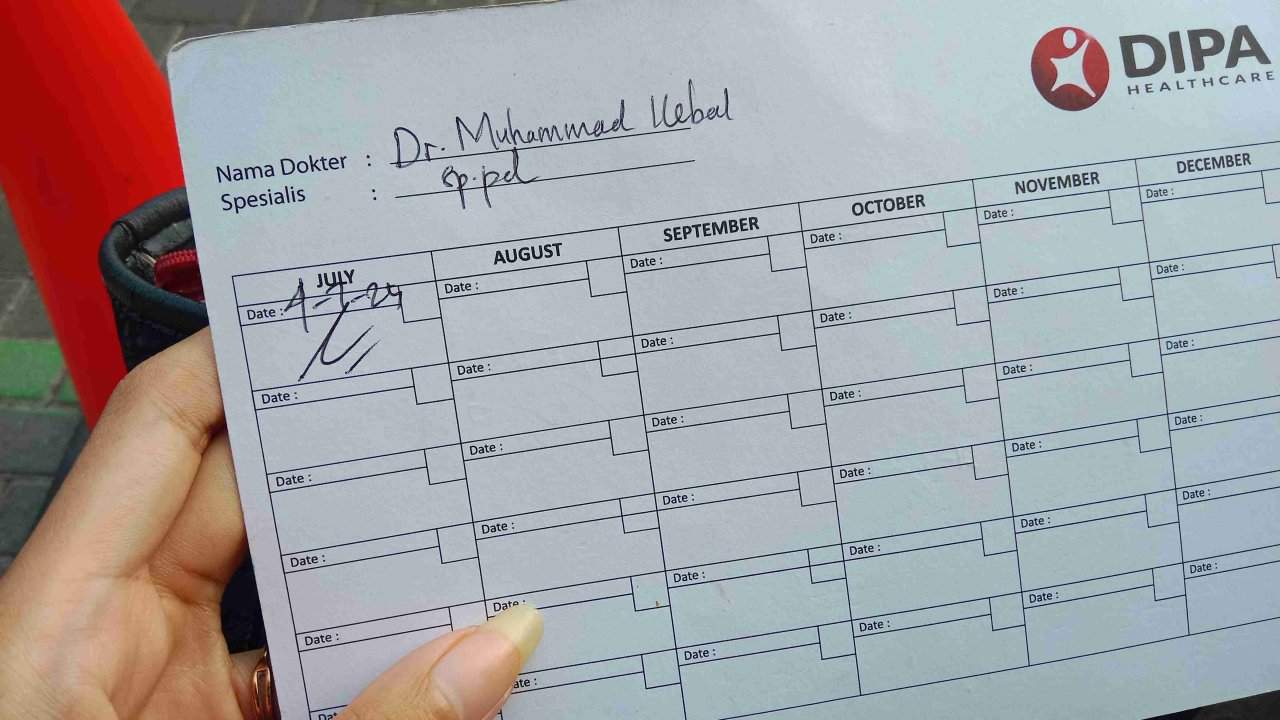 DIPA
HEALTHCARE
Nama Dokter : Dr. Muhammad
Spesialis : Sp.pd
JULY AUGUST SEPTEMBER OCTOBER NOVEMBER DECEMBER
Date : Date : Date : Date : Date : Date :
Date : Date : Date : Date : Date : Date :
Date : Date : Date : Date : Date : Date :
Date : Date : Date : Date : Date : Date :
Date : Date : Date : Date : Date : Date :
Date : Date : Date : Date : Date :